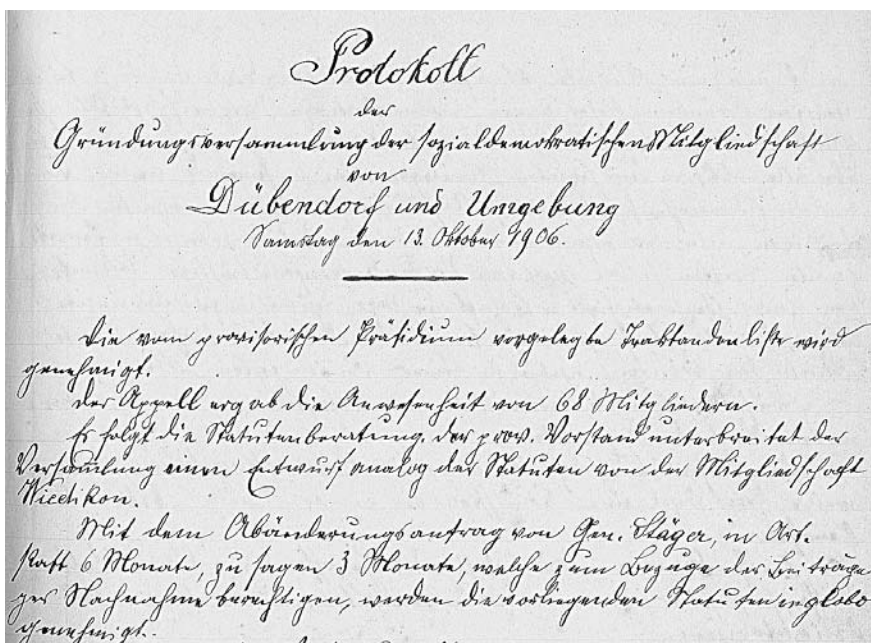 Protokoll
der
Gründungsversammlung der sozialdemokratischen Mitgliedschaft
von
Dübendorf und Umgebung
Samstag den 13. Oktober 1906.
Die vom provisorischen Präsidium vorgelegte Traktandenliste wird
genehmigt.
Der Appell ergab die Anwesenheit von 68 Mitgliedern.
Es folgt die Statutenberatung. Der prov. Vorstand unterbreitet der
Versammlung einen Entwurf analog der Statuten von der Mitgliedschaft
Wiedikon.
Mit dem Abänderungsantrag von Gen. Stäger, in Art.
statt 6 Monate, zu sagen 3 Monate, welche zum Bezuge der Beiträge
per Nachnahme berechtigen, werden die vorliegenden Statuten in globo
genehmigt.